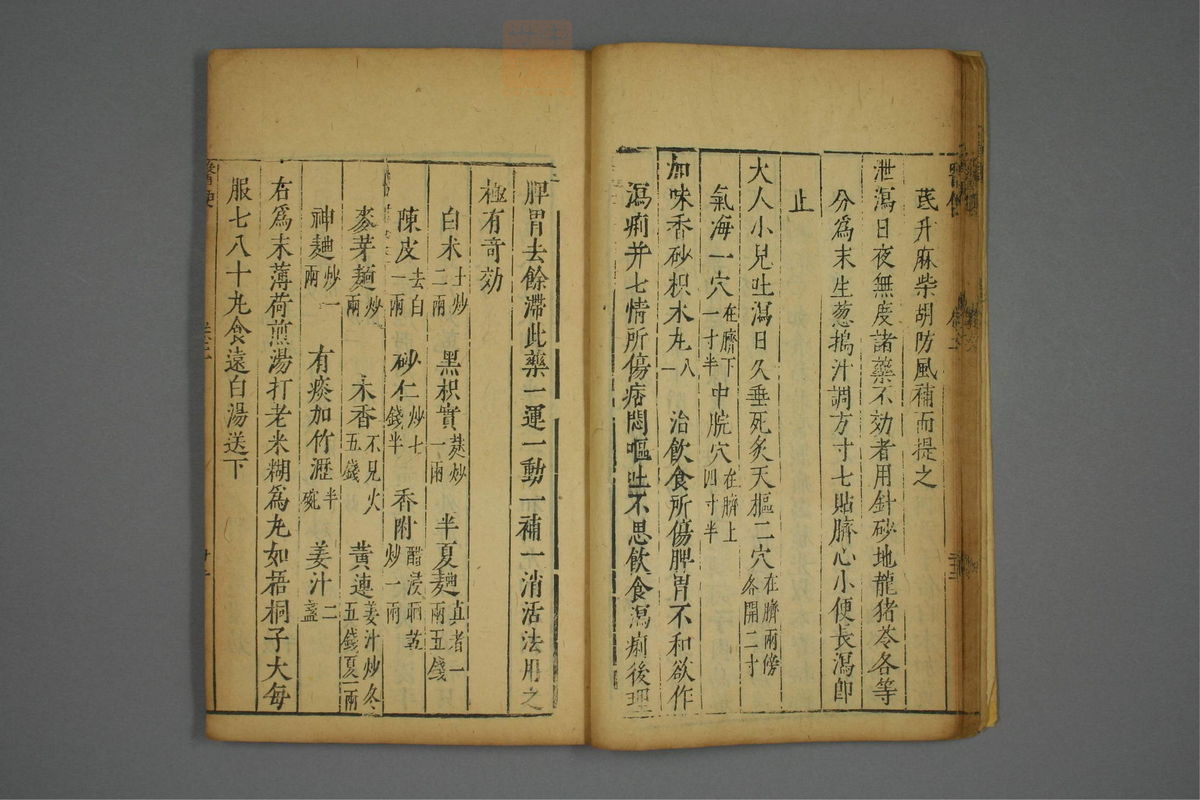 芪升麻柴胡防風補而提之
泄瀉日夜無度諸藥不効者用針砂地龍猪苓各等
分為末生葱搗汁調方寸匕貼臍心小便長瀉即
止
大人小兒吐瀉日久垂死灸天樞二穴在臍兩傍各開二寸
氣海一穴在臍下一寸半中脘穴在臍上四寸半
加味香砂枳朮丸八一治飲食所傷脾胃不和欲作
瀉痢并七情所傷痞悶嘔吐不思飲食瀉痢後理
脾胃去餘滯此藥一運一動一補一消活法用之
極有奇効
白朮土炒二兩黑枳實麸炒一兩半夏麯真者一兩五錢
陳皮去白一兩砂仁炒七錢半香附醋浸晒乾炒一兩
麥芽麵炒一兩木香不見火五錢黄連姜汁炒冬五錢夏一兩
神麯炒一兩有痰加竹瀝半碗姜汁二盞
右為末薄荷煎湯打老米糊為丸如梧桐子大每
服七八十丸食遠白湯送下